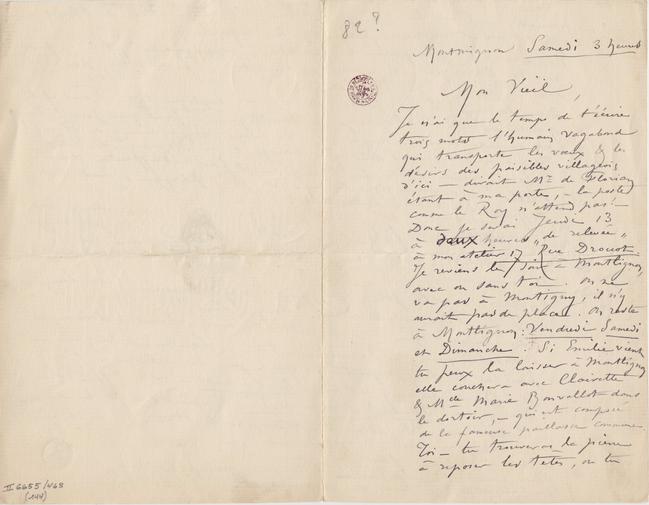 82?
Montmignon Samedi 3 heures
Mon Vieil,
Je n'ai que le temps de t'écrire
trois mots l'humain vagabond
qui transporte les vœux & les
désirs des paisibles villageois
d'ici — dirait Mr de Florian
étant à ma porte, — la poste
comme le Roy n'attend pas! —
Donc je serai Jeudi 13
à deux heures „de relevée"
à mon atelier 17 Rue Drouot
Je reviens le soir à Montlignon,
avec ou sans toi. On ne
va pas à Montigny, il n'y
aurait pas de place. On reste
à Montlignon: Vendredi Samedi
et Dimanche. Si Emilie vient
tu peux la laisser à Montlignon
elle couchera avec Clairette
& Melle Marie Bonvallot dans
le dortoir, — qui est composé
de la fameuse paillasse commune.
Toi — tu trouveras la pierre
à reposer les têtes, ou tu
II 6655/468
(144)